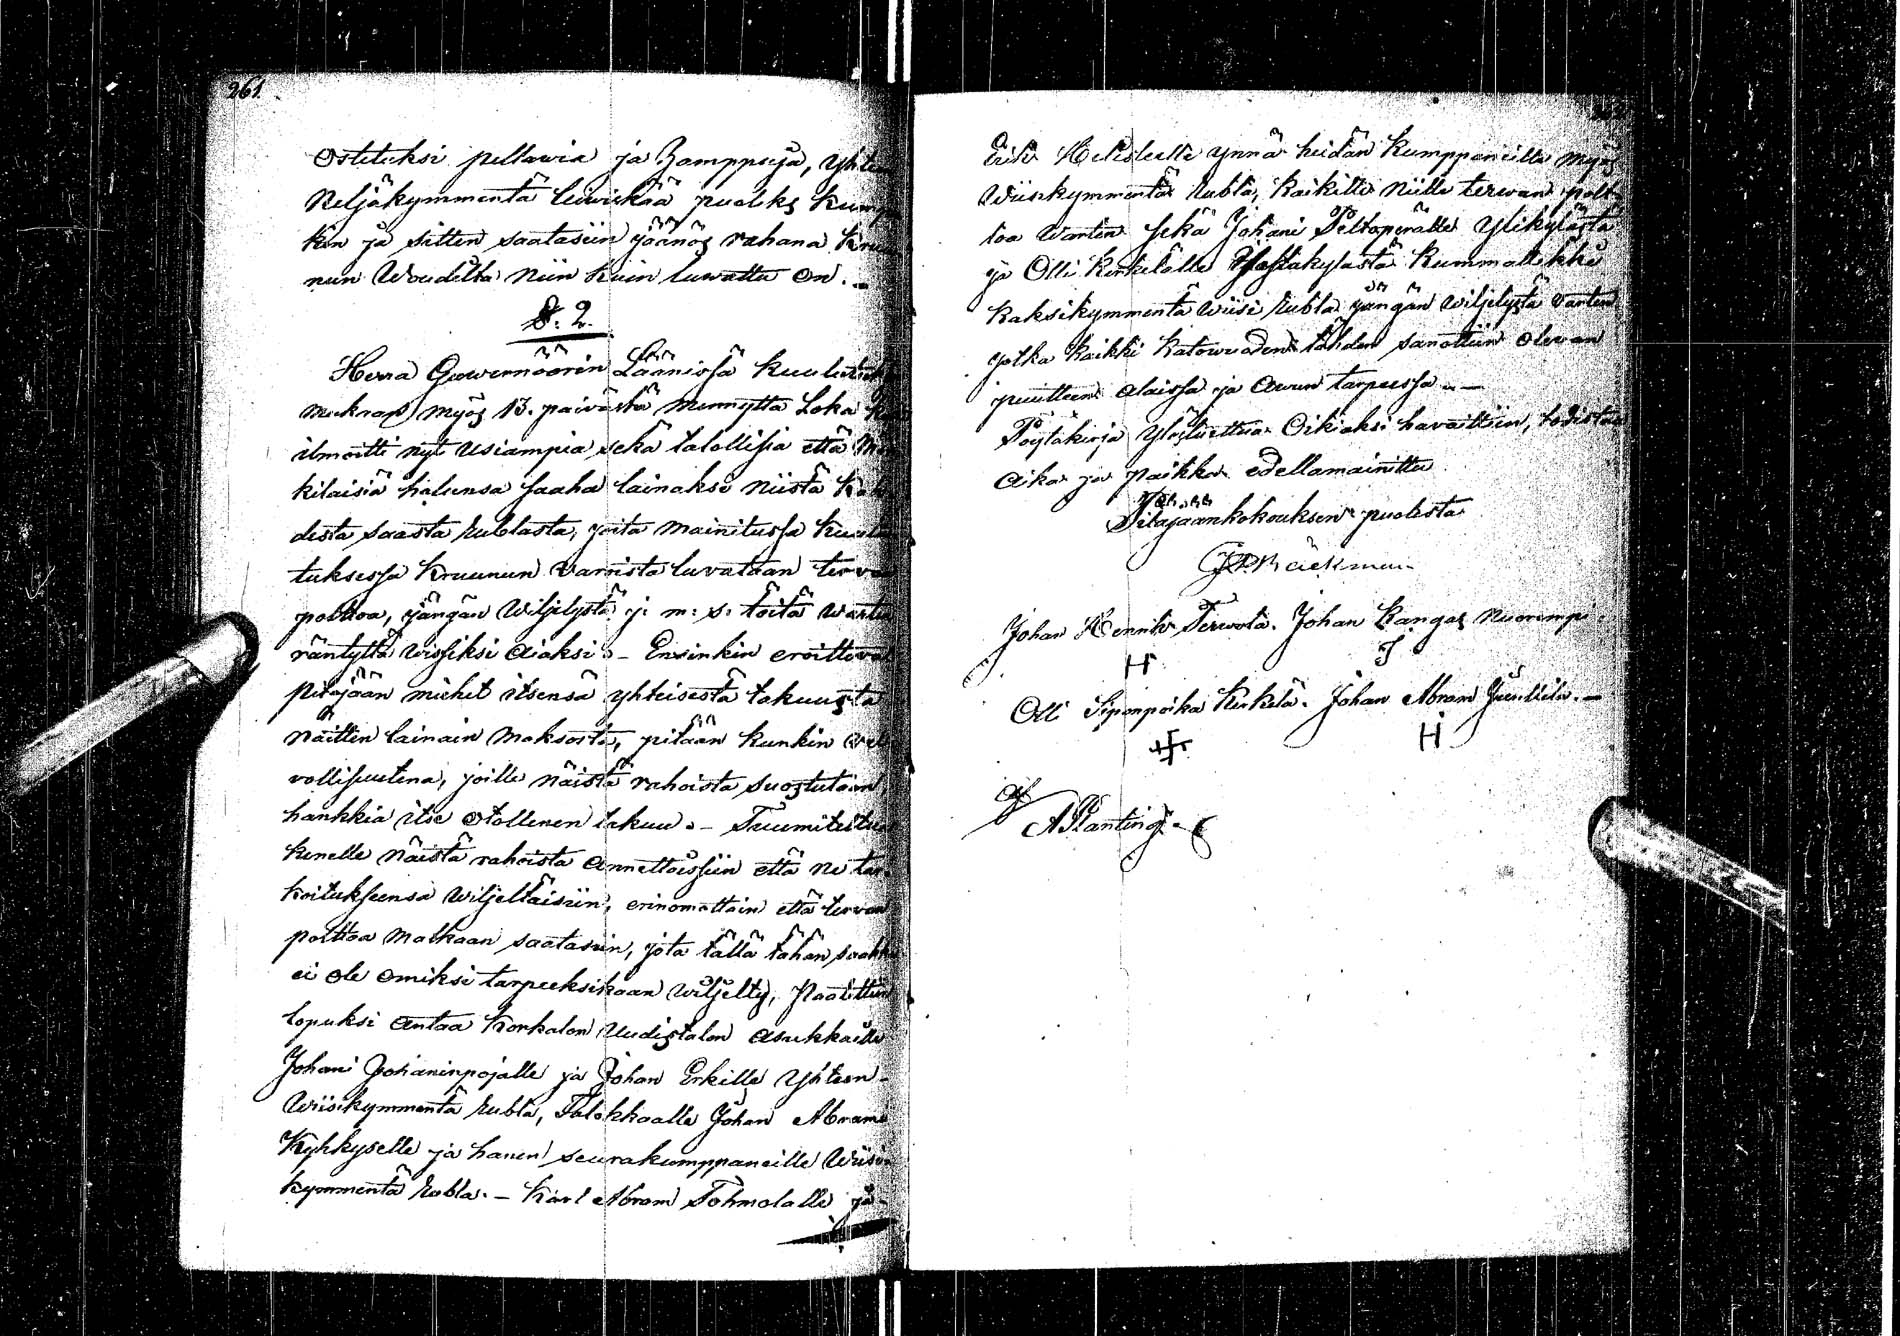 261.
Ostetuksi pellawia ja Zamppuja, yhteen
Neljäkymmentä leiwiskää puoleks kumpa
kin ja sitten saatasiin jäänös rahana Kruu
nun Woudilta niin kuin luwattu on. –
§. 2.
Herra Guwernöörin Läänissä kuulutuk
myös 13. päivästä mennyttä Loka
ilmoitti nyt Usiampia sekä talollisia että Mö
kiläisiä haluunsa saaha lainaksi niistä Kah
desta saasta Rublasta, joita mainitussa kuulu
tuksessa Kruunun varoista luvataan terva
polttoa, jängän wiljelystä j: m: s: töitä warten
räntyttä wissiksi aiaksi. – Ensinkin eroittivat
Pitäjään miehet itsensä yhteisestä takuusta
näitten lainain maksosta, pitään kunkin
vollisuutena, joille näistä rahoista suostutaan
hankkia itse otollinen takuu. – Tuumitettua
kenelle näistä rahoista annettaissiin että ne tar-
koitukseensa wiljeltäisiin, erinomattain että tervan
polttoa matkaan saatasiin, jota tällä tähän saakka
ei ole omiksi tarpeeksikaan wiljelty, Päätettiin
lopuksi antaa Korkalon Uudistalon asukkaille
Johani Johaninpojalle ja Johan Erkille Yhteen-
Wiisikymmentä Rubla, Talokkaalle Johan Abram
Kyhkyselle ja hänen seurakumppaneille Wiisi-
kymmentä Rubla. – Karl Abram Tohmolalle ja-
Erik ynnä heidän Kumppaneille myös
Wiisikymmentä Rubla, kaikille niille terwan polt-
toa Warten sekä Johani Peltoperälle Ylikylästä
ja Olli Kerkelälle Kummallekki
Kaksikymmentä wiisi Rubla jängän wiljelystä varten
jotka kaikki katowuoden tähden sanottiin olevan
puutteen alaissa ja awun tarpeessa. –
Pöytäkirja ylösluettua Oikiaksi havaittiin, todistaa
aika ja paikka edellämainittu
Pitäjäänkokouksen puolesta
Bäckman
Johan Henrik Terwola. Johan Kangas nuorempi.
Olli Siponpoika Kerkelä. Johan Abram Juntila. –
H
A Planting.